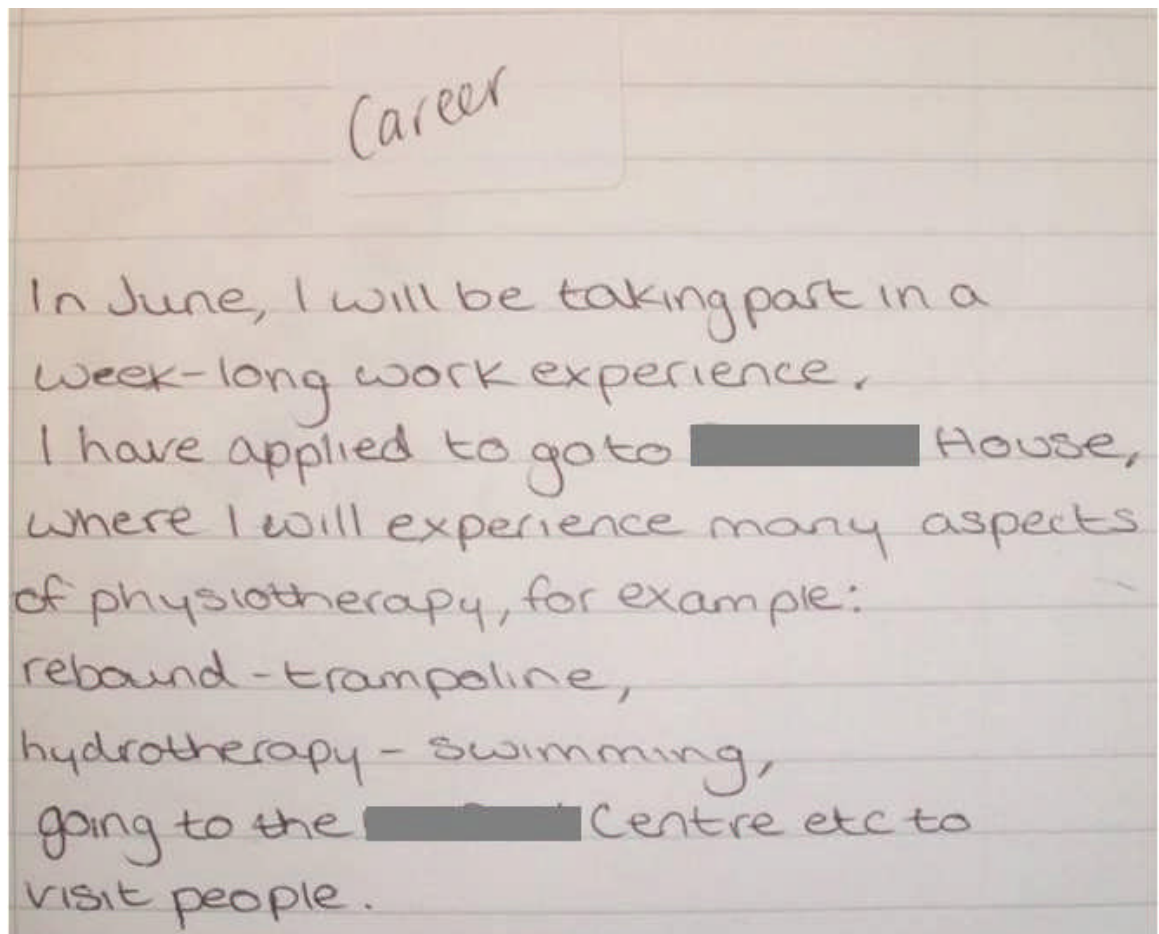 Career
In June, I will be taking part in a
week-long work experience.
I have applied to go to House,
where I will experience many aspects
of physiotherapy, for example:
rebound - trampoline,
hydrotherapy - swimming,
going to the Centre etc to
visit people.